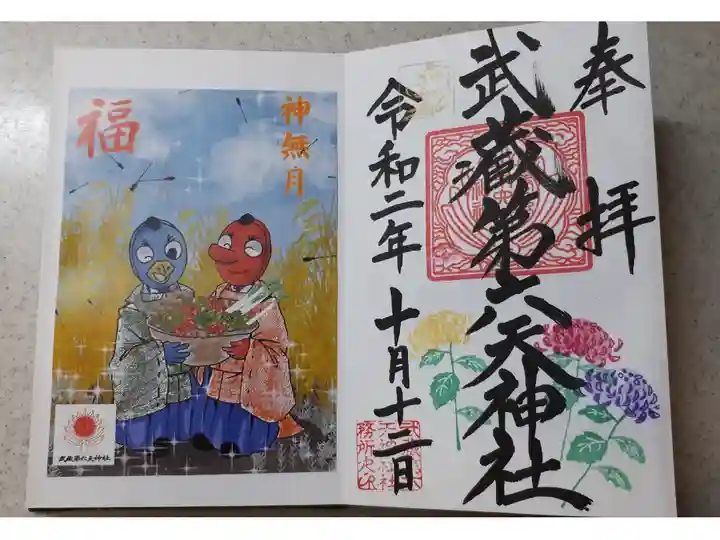 奉拝
武蔵第六天神社
令和二年十月十二日
神無月
福
武蔵第六天神社